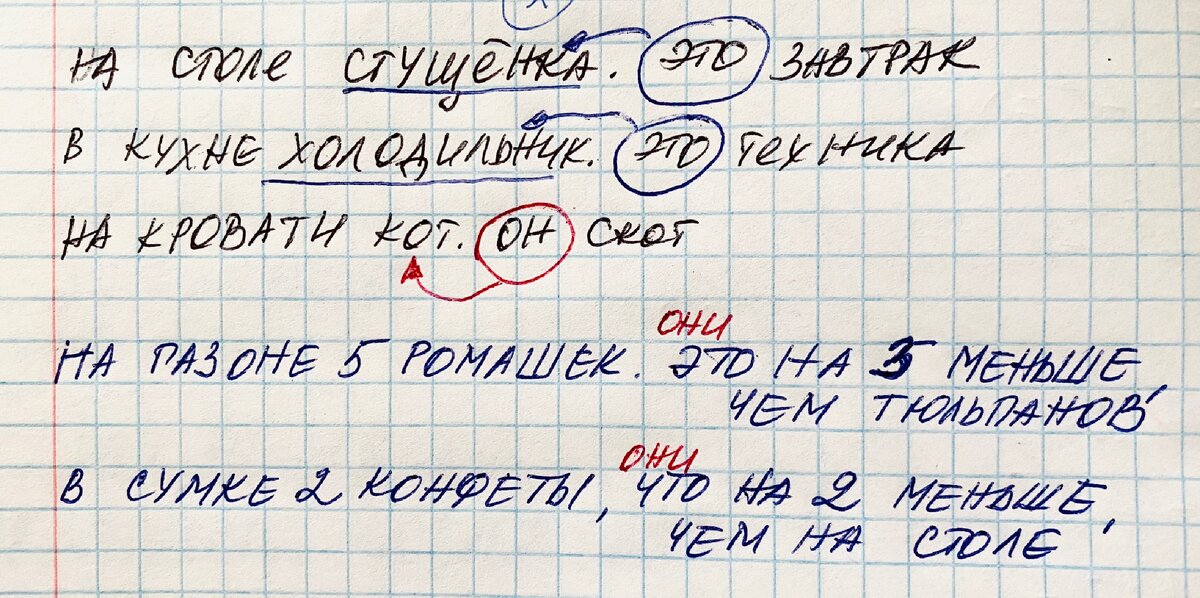 НА СТОЛЕ СТУЩЁНКА. ЭТО ЗАВТРАК
В КУХНЕ ХОЛОДИЛЬНИК. ЭТО ТЕХНИКА
НА КРОВАТИ КОТ. ОН СКОТ
ОНИ
НА ГАЗОНЕ 5 РОМАШЕК. ЭТО НА 5 МЕНЬШЕ,
ЧЕМ ТЮЛЬПАНОВ
ОНИ
В СУМКЕ 2 КОНФЕТЫ, ЧТО НА 2 МЕНЬШЕ,
ЧЕМ НА СТОЛЕ